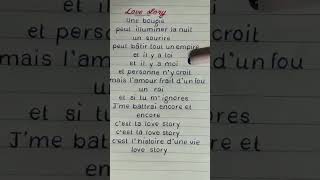 Love Story
Une bougie
peut illuminer la nuit
un sourire
peut bâtir tout un empire
et il y a toi
et il y a moi
et personne n'y croit
mais l'amour frait d'un fou
un roi
et si tu m'ignores
J'me battrai encore et
encore
c'est ta love story
c'est ta love story
c'est l'histoire d'une vie
love story